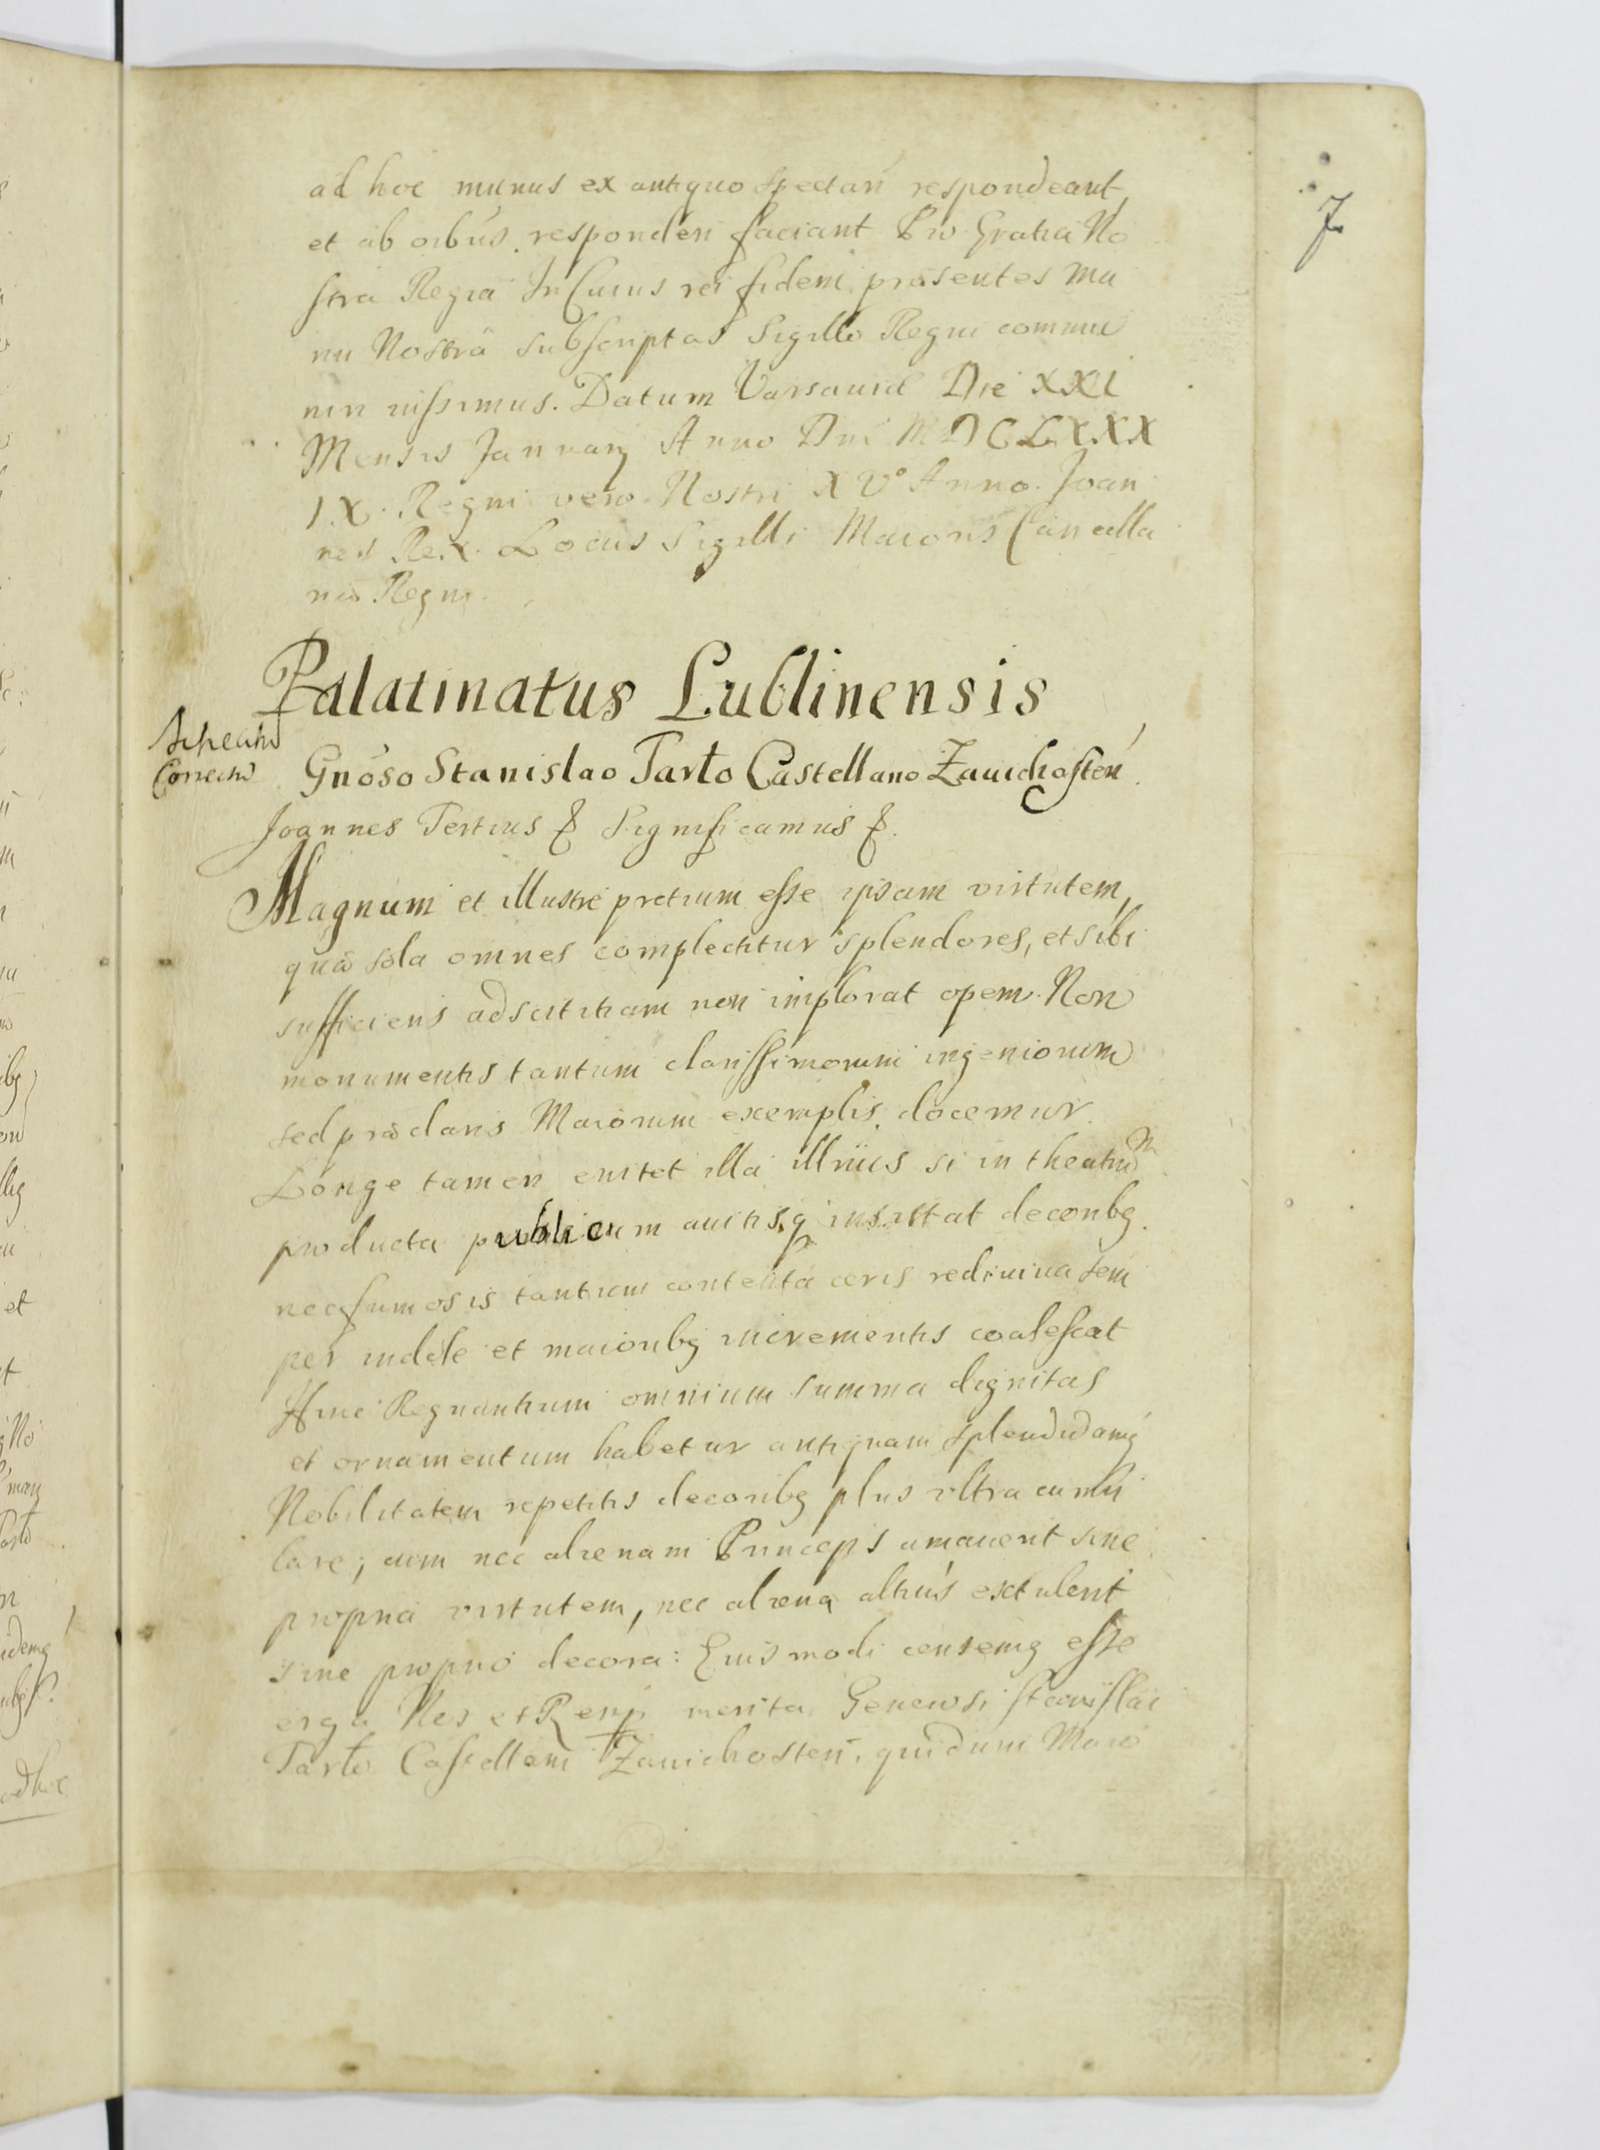 7
ad hoc munus ex antiquo spectań respondeant,
et ab oibus responderi faciant Pro Gratia No
stra Regia In Cuius rei fidem præsentes ma
nu Nostra subscriptas Sigillo Regni commu
niri iussimus. Datum Varsaviæ Die XXI
Mensis Januarij Anno Dni MDCLXXX
IX. Regni vero Nostri XV° Anno. Joan
nes Rex. Locus Sigilli Maioris Cancella
riæ Regni.
Palatinatus Lublinensis
Correcta
Gnoso Stanislao Tarło Castellano Zavichosteń.
Joannes Tertius & Significamus &.
Magnum et illustre pretium esse ipsam virtutem,
quæ sola omnes complectitur splendores, et sibi
sufficiens adscititiam non implorat opem. Non
monumentis tantum clarissimorum ingeniorum
sed præclaris Maiorum exemplis docemur.
Longe tamen enitet illa illrius si in theatrum
producta publicum avitisq insistat decoribg.
nec fumosis tantum contenta ceris rediviva sem
per indole et maioribg incrementis coalescat
Hinc Regnantium omnium summa dignitas
et ornamentum habetur antiquam splendidamq
Nobilitatem repetitis decoribg plus ultra cumu
lare; cum nec alienam Princeps amaverit sine
propria virtutem, nec aliena altius extulerit
sine proprio decora: Eiusmodi censemg esse
erga Nos et Remp merita Generosi Stanislai
Tarło Castellani Zavichosteń, qui dum Maio